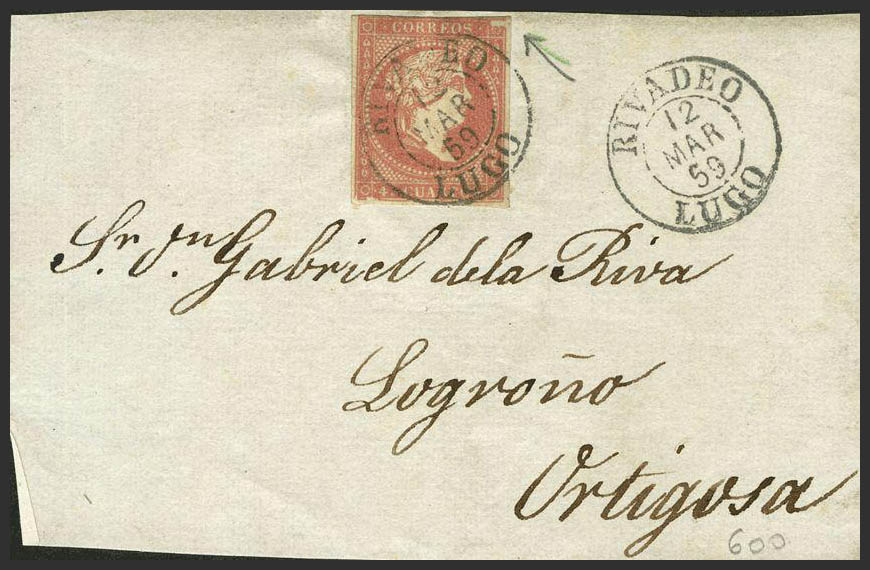 CORREOS
RIVADEO
12
MAR
59
LUGO
RIVADEO
12
MAR
59
LUGO
4 CUA
Sr. Dn. Gabriel de la Riva
Logroño
Ortigosa
600